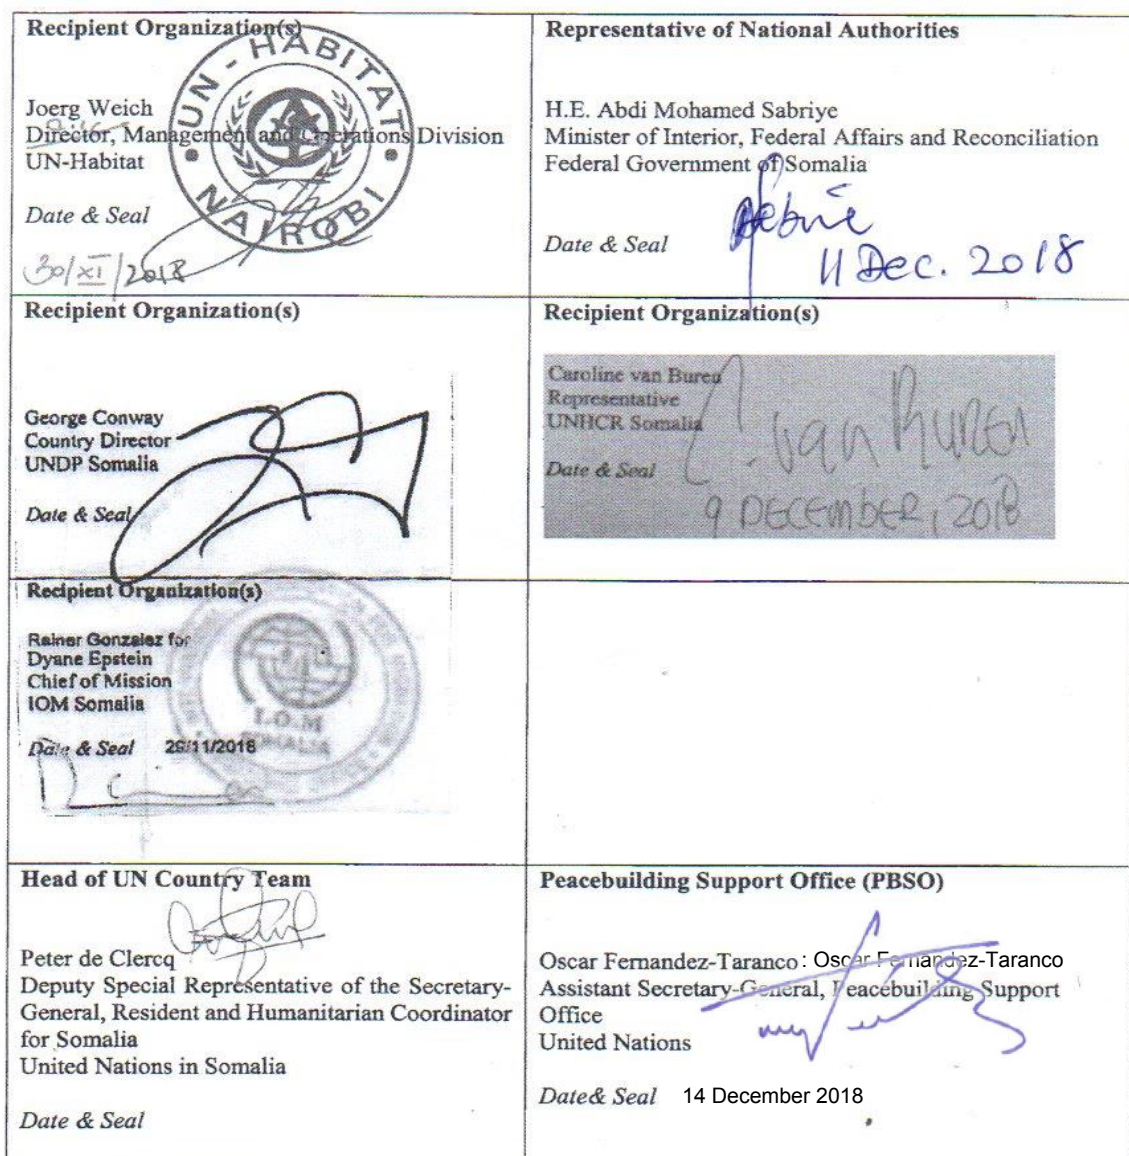 Recipient Organization(s)
UN-HABITAT
NAIROBI
Joerg Weich
Director, Management and Operations Division
UN-Habitat
Date & Seal
30/XI/2018
Representative of National Authorities
H.E. Abdi Mohamed Sabriye
Minister of Interior, Federal Affairs and Reconciliation
Federal Government of Somalia
Date & Seal
11 Dec. 2018
Recipient Organization(s)
George Conway
Country Director
UNDP Somalia
Date & Seal
Recipient Organization(s)
Caroline van Buren
Representative
UNHCR Somalia
C. van Buren
Date & Seal
9 DECEMBER, 2018
Recipient Organization(s)
Rainer Gonzalez for
Dyane Epstein
Chief of Mission
IOM Somalia
I.O.M
SOMALIA
Date & Seal 29/11/2018
Head of UN Country Team
Peter de Clercq
Deputy Special Representative of the Secretary-
General, Resident and Humanitarian Coordinator
for Somalia
United Nations in Somalia
Date & Seal
Peacebuilding Support Office (PBSO)
Oscar Fernandez-Taranco : Oscar Fernandez-Taranco
Assistant Secretary-General, Peacebuilding Support
Office
United Nations
Date& Seal 14 December 2018